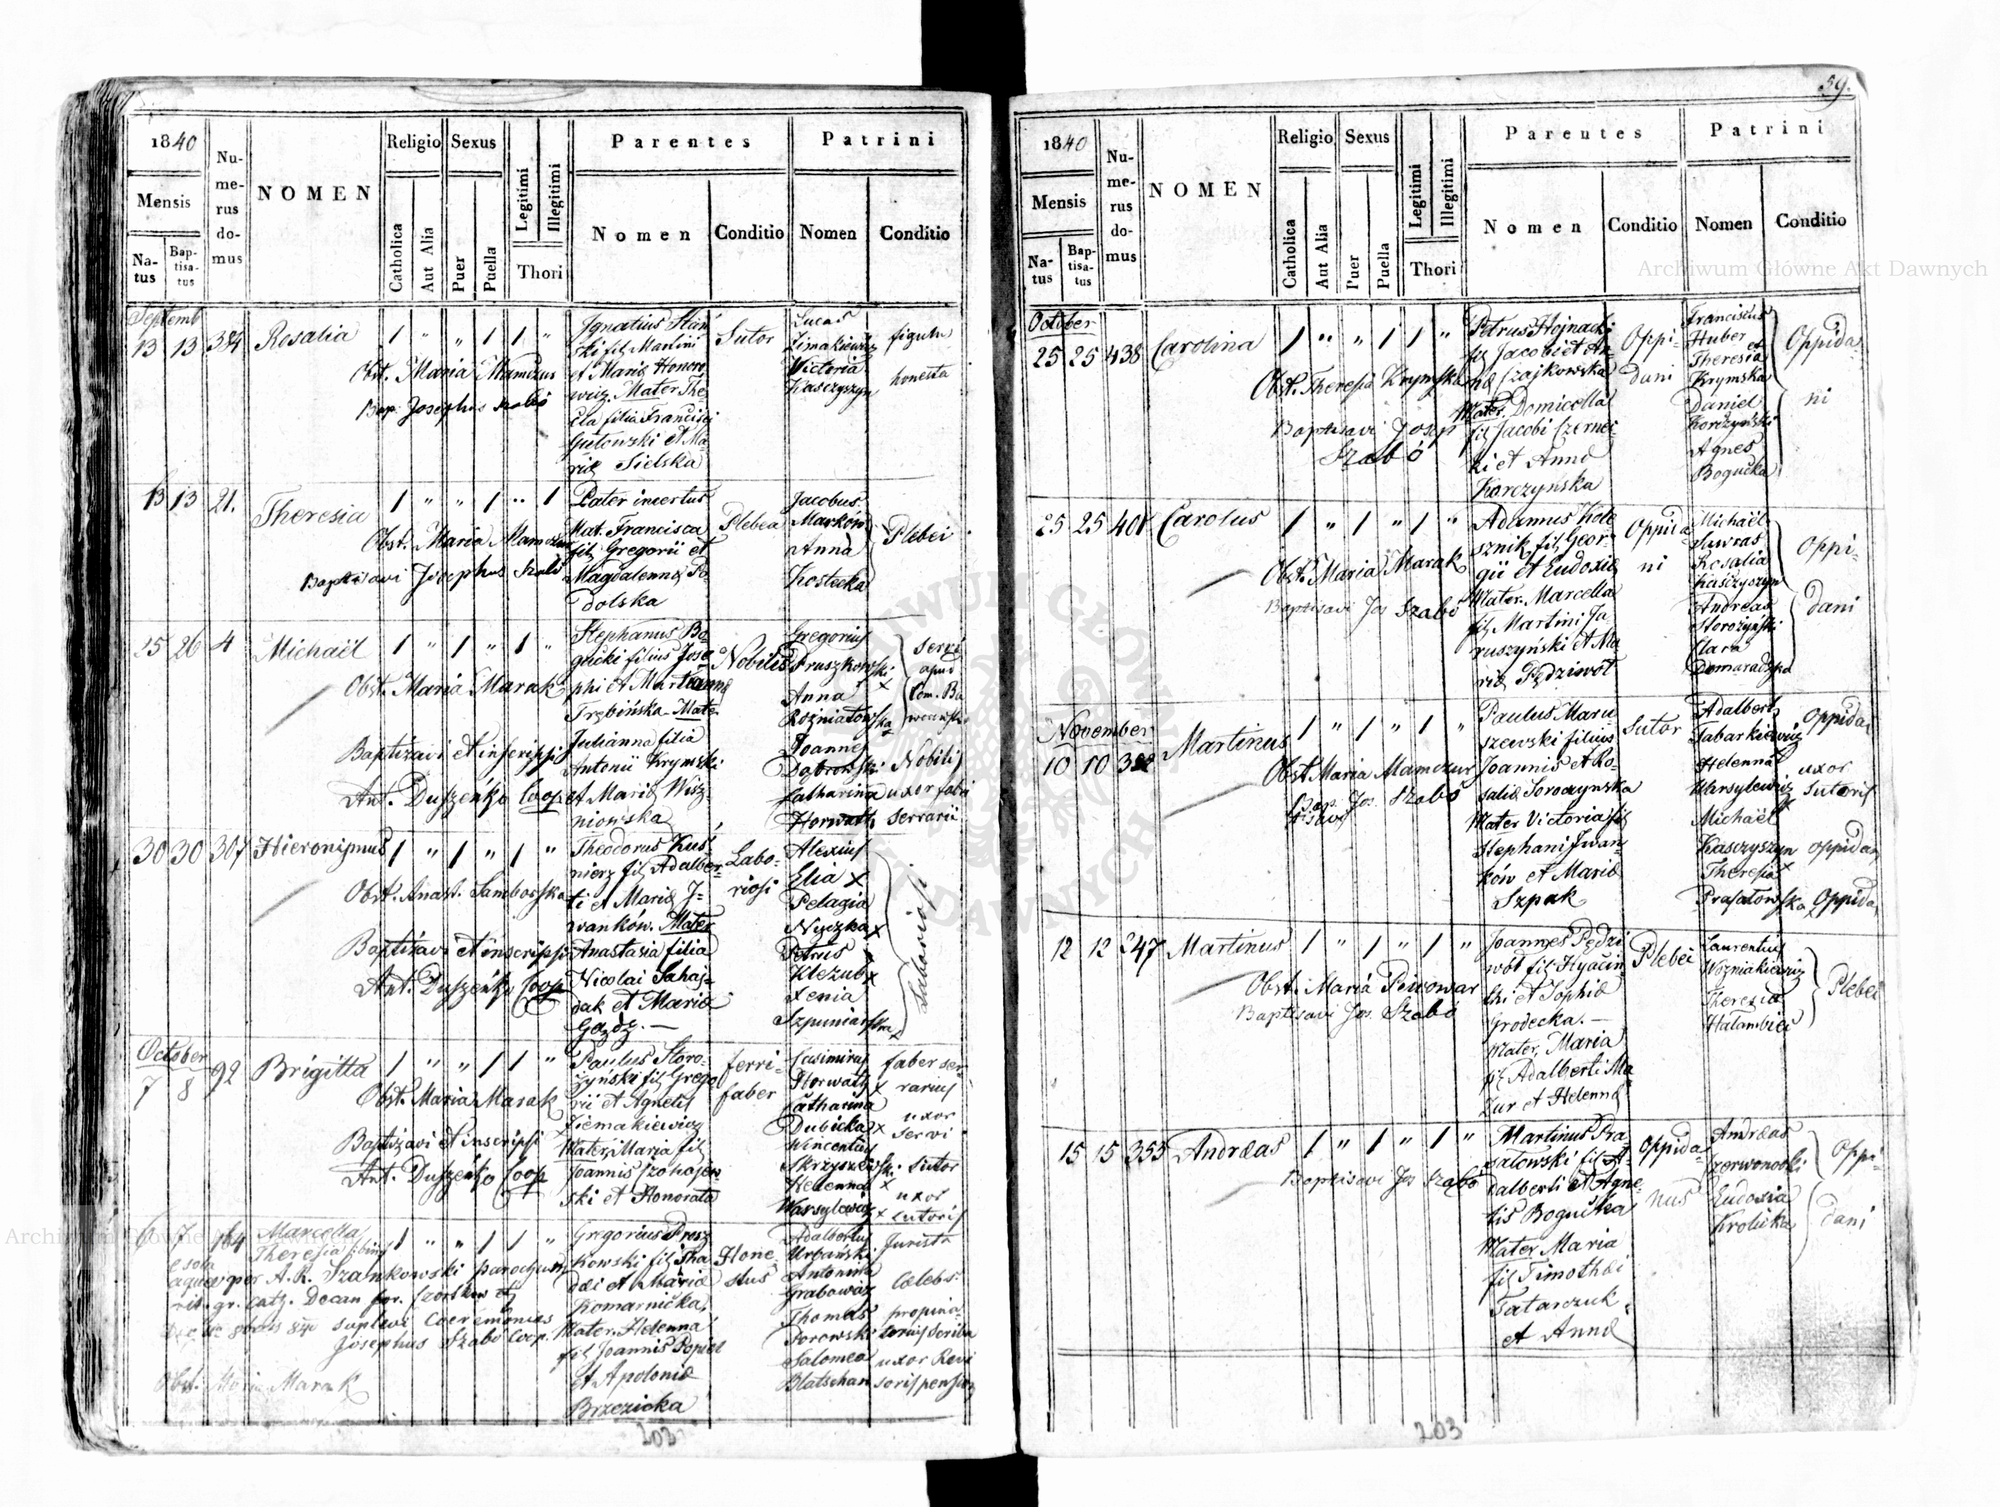 1840
Mensis
Natus
Baptisatus
Numerus domus
NOMEN
Religio
Catholica
Aut Alia
Sexus
Puer
Puella
Legitimi
Illegitimi
Thori
Parentes
Nomen
Conditio
Patrini
Nomen
Conditio
Septemb
13 13 384 Rosalia / " " / / "
Obst. Maria Mamczur
Bap. Josephus Szabó
Ignatius Stań
ski fil. Martini
et Mariæ Honoro
wicz. Mater The-
cla filia Francisci
Gutowski et Ma-
riæ Sielska
Sutor
Lucas
Zimakiewicz
Victoria
Kasczyszyn
figulu
honesta
13 13 21. Theresia / " " / " /
Obst. Maria Mamczur
Baptisavi Josephus Szabó
Pater incertus
Mat. Francisca
fil. Gregorii et
Magdalennæ Po
dolska
Plebea
Jacobus
Marków
Anna
Kostecka
Plebei
25 26 4 Michaël / " / " / "
Obst. Maria Marak
Baptizavi et inscripsi
Ant. Duszeńko Coop
Stephanus Bo-
gucki filius Jose
phi et Martiannæ
Trębińska Mate
Julianna filia
Antonii Krymski
et Mariæ Wisz-
niowska
Nobilis
Gregorius
Pruszkowski
Anna x
Rożniatowska
Joannes
Dąbrowski
Catharina
Horwath
servi
apud
Com. Ba
Nobilis
uxor fabri
serrarii
30 30 307 Hieronymus / " / " / "
Obst. Anast. Samborska
Baptizavi et inscripsi
Ant. Duszeńko Coop
Theodorus Kus-
nierz fil. Adalber-
ti et Mariæ I-
wanków. Mater
Anastasia filia
Nicolai Sahaj-
dak et Mariæ
Gozdz. —
Labo-
riosi
Alexius
Elia x
Pelagia
Nyczka x
Petrus
Klezub x
Xenia
Szpuniarska x
Laboriosi
October
7 8 92 Brigitta / " " / / "
Obst. Maria Marak
Baptizavi et inscripsi
Ant. Duszeńko Coop
Paulus Storo-
żyński fil. Grego
rii et Agnetis
Ziemakiewicz
Mater, Maria fil.
Joannis Czohajew
ski et Honorata
ferri-
faber
Casimirus
Horwath x
Catharina
Dubicka x
Wincentius
Skrzyszewski
Helenna x
Wasylewicz x
faber ser-
rarius
uxor
servi
sutor
uxor
sutoris
6 7 164 Marcella
Theresia / " " / / "
aqua per A. R. Szankowski parochum
rit. gr. cath. Decan for.
suplevi Coeremonies
Josephus Szabó Coop.
Obst. Maria Marak
Gregorius Prosz
kowski fil. Tha
dæi et Mariæ
Komarnicka,
Mater. Helenna
fil. Joannis Popiel
et Apoloniæ
Brzezicka
Hone
stus
Adalbertus
Urbański
Antonina
Grabowicz
Thomas
Dorowski
Salomea
Blatschan
Jurista
Cælebs
propina-
torius scriba
uxor Revi
soris pension
203
59.
1840
Mensis
Natus
Baptisatus
Numerus domus
NOMEN
Religio
Catholica
Aut Alia
Sexus
Puer
Puella
Legitimi
Illegitimi
Thori
Parentes
Nomen
Conditio
Patrini
Nomen
Conditio
October
25 25 438 Carolina / " " / / "
Obst. Theresia Krymska
Baptisavi Josep
Szabó
Petrus Hojnacki
fil. Jacobi et An-
næ Czajkowska
Mater. Domicella
fil. Jacobi Czernec
ki et Annæ
Korczynska
Oppi-
dani
Franciscus
Huber et
Theresia
Krymska
Daniel
Korczyński
Agnes
Bogucka
Oppida-
ni
25 25 401 Carolus / " / " / "
Obst. Maria Marak
Baptisavi Jos Szabó
Adamus Kole
sznik fil. Geor-
gii et Eudoxiæ
Mater. Marcella
fil. Martini Ja
ruszyński et Ma
riæ Pędziwot
Oppida-
ni
Michaël
Huwras
Rosalia
Kasczyszyn
Andreas
Storożyński
Clara
Domaradzka
Oppi-
dani
November
10 10 382 Martinus / " / " / "
Obst Maria Mamczur
Bap- Jos. Szabó
tisavi
Paulus Maru
szewski filius
Joannis et Ro-
saliæ Sorodzynska
Mater Victoria fil
Stephani Iwan
ków et Mariæ
Szpak
Sutor
Adalbert
Tabarkiewicz
Helenna
Wasylewicz
Michaël
Kasczyszyn
Theresia
Prasatowska
Oppidan
uxor
Sutoris
oppidan
Oppida
12 12 247 Martinus / " / " / "
Obst. Maria Peiwowar
Baptisavi Jos. Szabó
Joannes Pędzi
wot fil. Hyacin
thi et Sophiæ
Grodecka. —
Mater, Maria
fil. Adalberti Ma
zur et Helennæ
Plebei
Laurentius
Wozniakiewicz
Theresia
Halambiec
Plebei
15 15 353 Andræas / " / " / "
Baptisavi Jos Szabó
Martinus Pra-
satowski fil. A-
dalberti et Agne-
tis Bogučka
Mater Maria
fil Timothei
Tatarczuk
et Annæ
Oppida-
nus
Andræas
Czerwonocki
Eudoxia
Krolicka
Oppi-
dani
203
Archiwum Główne Akt Dawnych
Archiwum Główne Akt Dawnych